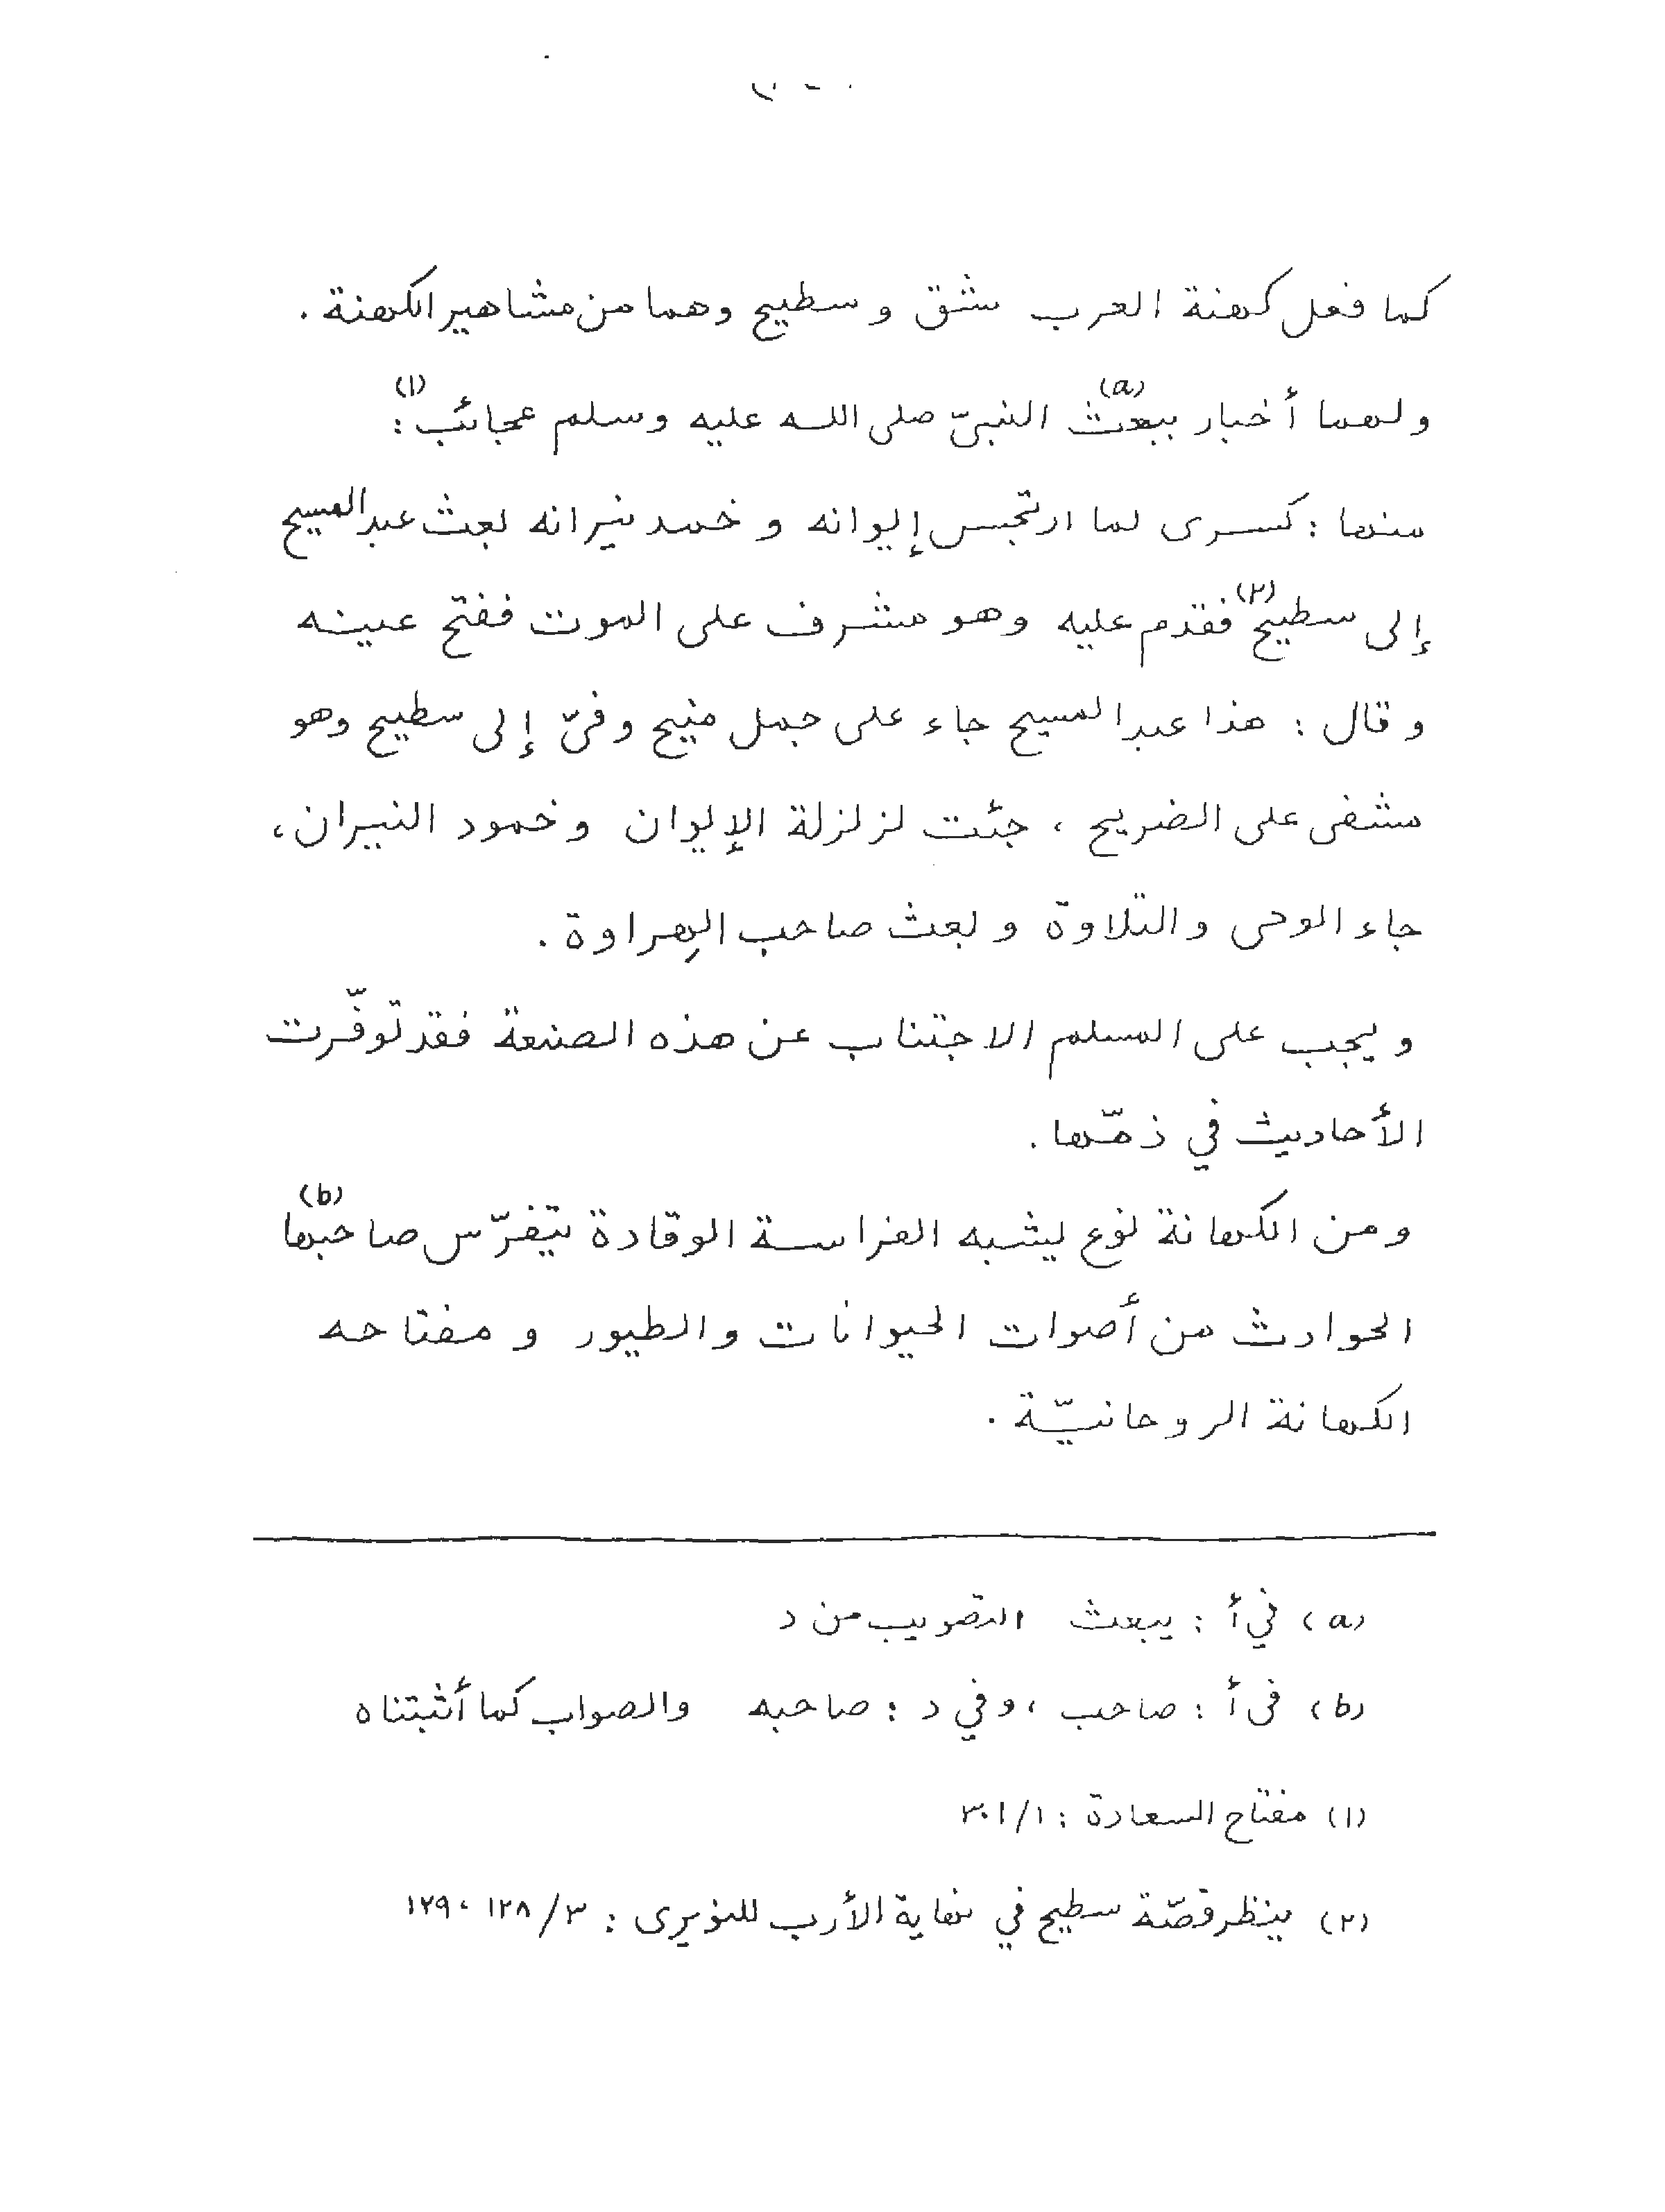 كما فعل كهنة العرب شق و سطيح وهما من مشاهير الكهنة .
ولهما أخبار ببعث(a) النبيّ صلى الله عليه وسلم عجائب(١) :
منها : كسرى لما ارتجس إيوانه و خمد نيرانه بعث عبد المسيح
إلى سطيح(٢) فقدم عليه وهو مشرف على الموت ففتح عينه
و قال : هذا عبد المسيح جاء على جمل منيح وفىّ إلى سطيح وهو
مشفى على الضريح ، جئت لزلزلة الإيوان و خمود النيران ،
جاء الوحى والتلاوة وبعث صاحب الهِراوة .
و يجب على المسلم الاجتناب عن هذه الصنعة فقد توفّرت
الأحاديث في ذمّها .
و من الكهانة نوع يشبه الفراسة الوقادة يتفرّس صاحبها(b)
الحوادث من أصوات الحيوانات والطيور و مفتاحه
الكهانة الروحانيّة .
(a) في أ : يبعث التصويب من د
(b) فى أ : صاحب ، وفي د : صاحبه والصواب كما أثبتناه
(١) مفتاح السعادة : ٣٠١/١
(٢) ينظر قصّة سطيح في نهاية الأرب للنويرى : ٣/ ١٢٨ ، ١٢٩